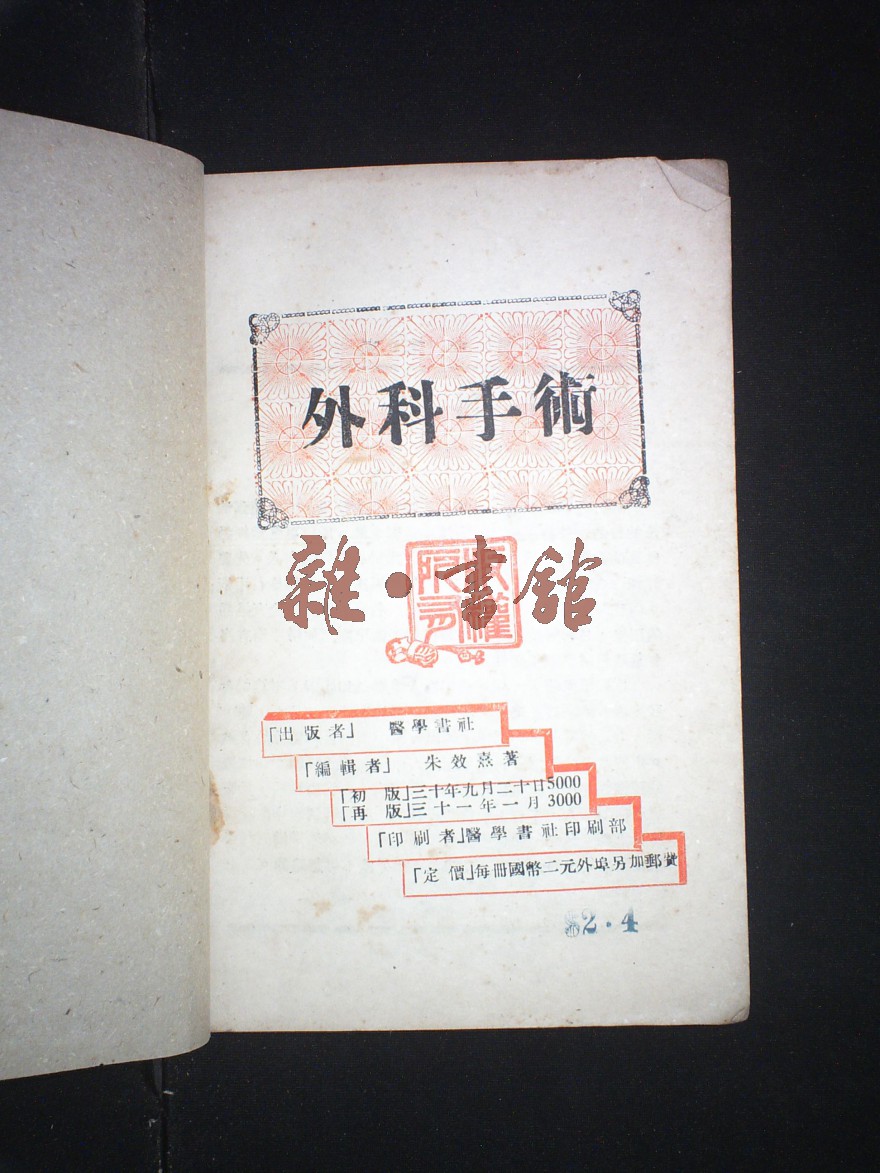 外科手術
雜·書館
版權所有
「出版者」 醫學書社
「編輯者」 朱效熹著
「初版」三十年九月二十日5000
「再版」三十一年一月3000
「印刷者」醫學書社印刷部
「定價」每冊國幣二元外埠另加郵費
2.4